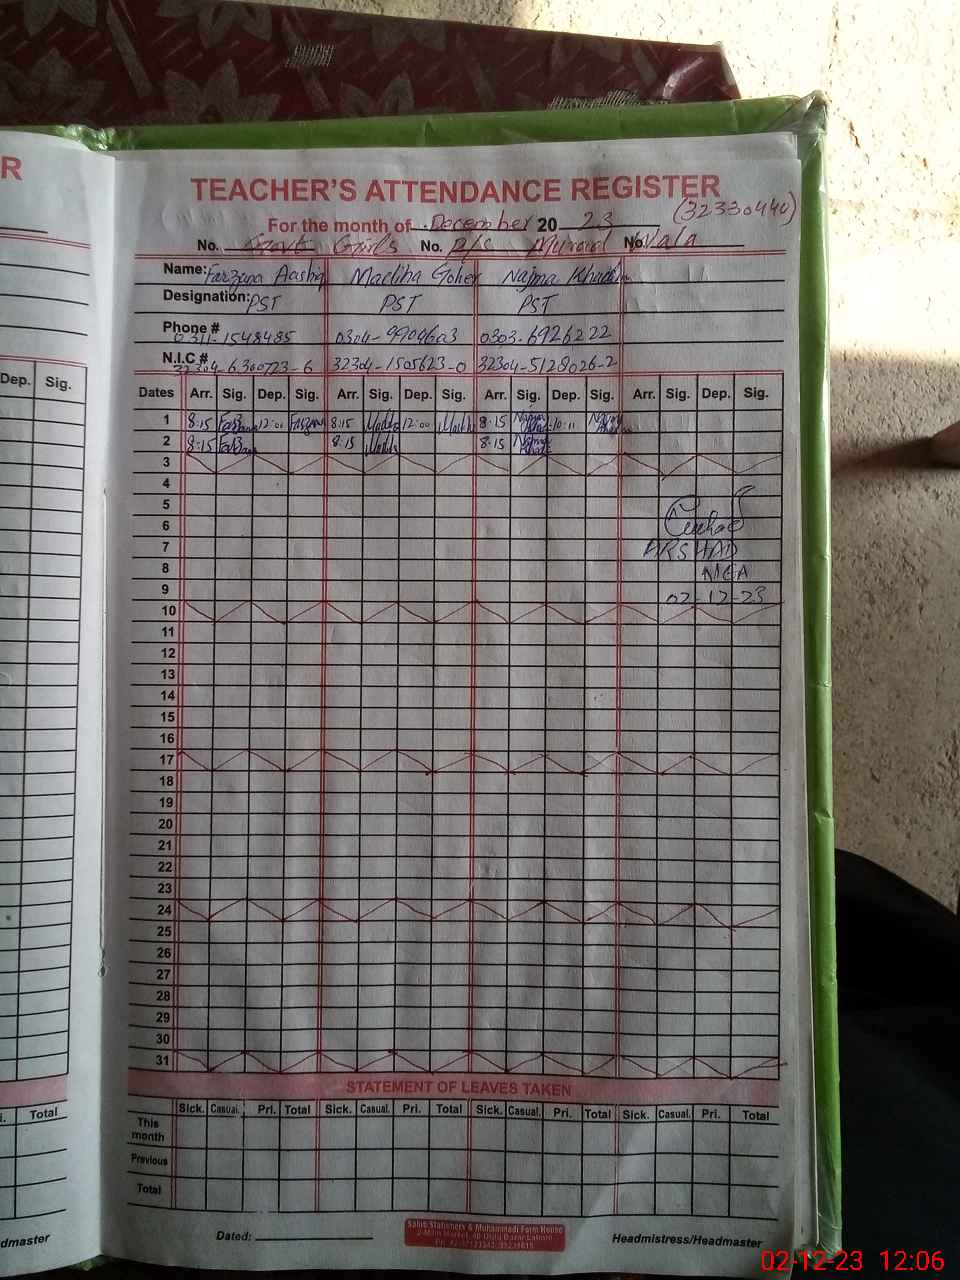 R
TEACHER'S ATTENDANCE REGISTER
(32330440)
For the month of December 20 23
No. Govt Girls No. P/S Murad No. Wala
Name: Farzana Aashiq Madiha Goher Najma Khadim
Designation: PST PST PST
Phone # 0311-1548485 0304-9904603 0303-6926222
N.I.C.# 32304-6300723-6 32304-1505623-0 32304-5128026-2
Dep. Sig.
Dates Arr. Sig. Dep. Sig. Arr. Sig. Dep. Sig. Arr. Sig. Dep. Sig. Arr. Sig. Dep. Sig.
1 8:15 Farzana 12:00 Farzana 8:15 12:00 8:15 Najma 10:11 Najma
2 8:15 Farzana 8:15 8:15 Najma
3
4
5
6
7 ARSHAD
8 MEA
9 02-12-23
10
11
12
13
14
15
16
17
18
19
20
21
22
23
24
25
26
27
28
29
30
31
STATEMENT OF LEAVES TAKEN
Total
Sick. Casual. Pri. Total Sick. Casual. Pri. Total Sick. Casual. Pri. Total Sick. Casual. Pri. Total
This month
Previous
Total
dmaster
Dated:
Sabri Stationers & Muhammadi Form House
Headmistress/Headmaster
02-12-23 12:06